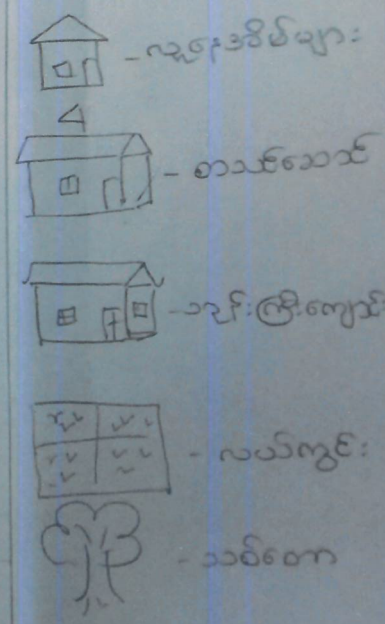 - လူနေအိမ်များ
- စာသင်ဆောင်
- ဘုန်းကြီးကျောင်း
- လယ်ကွင်း
- သစ်တော